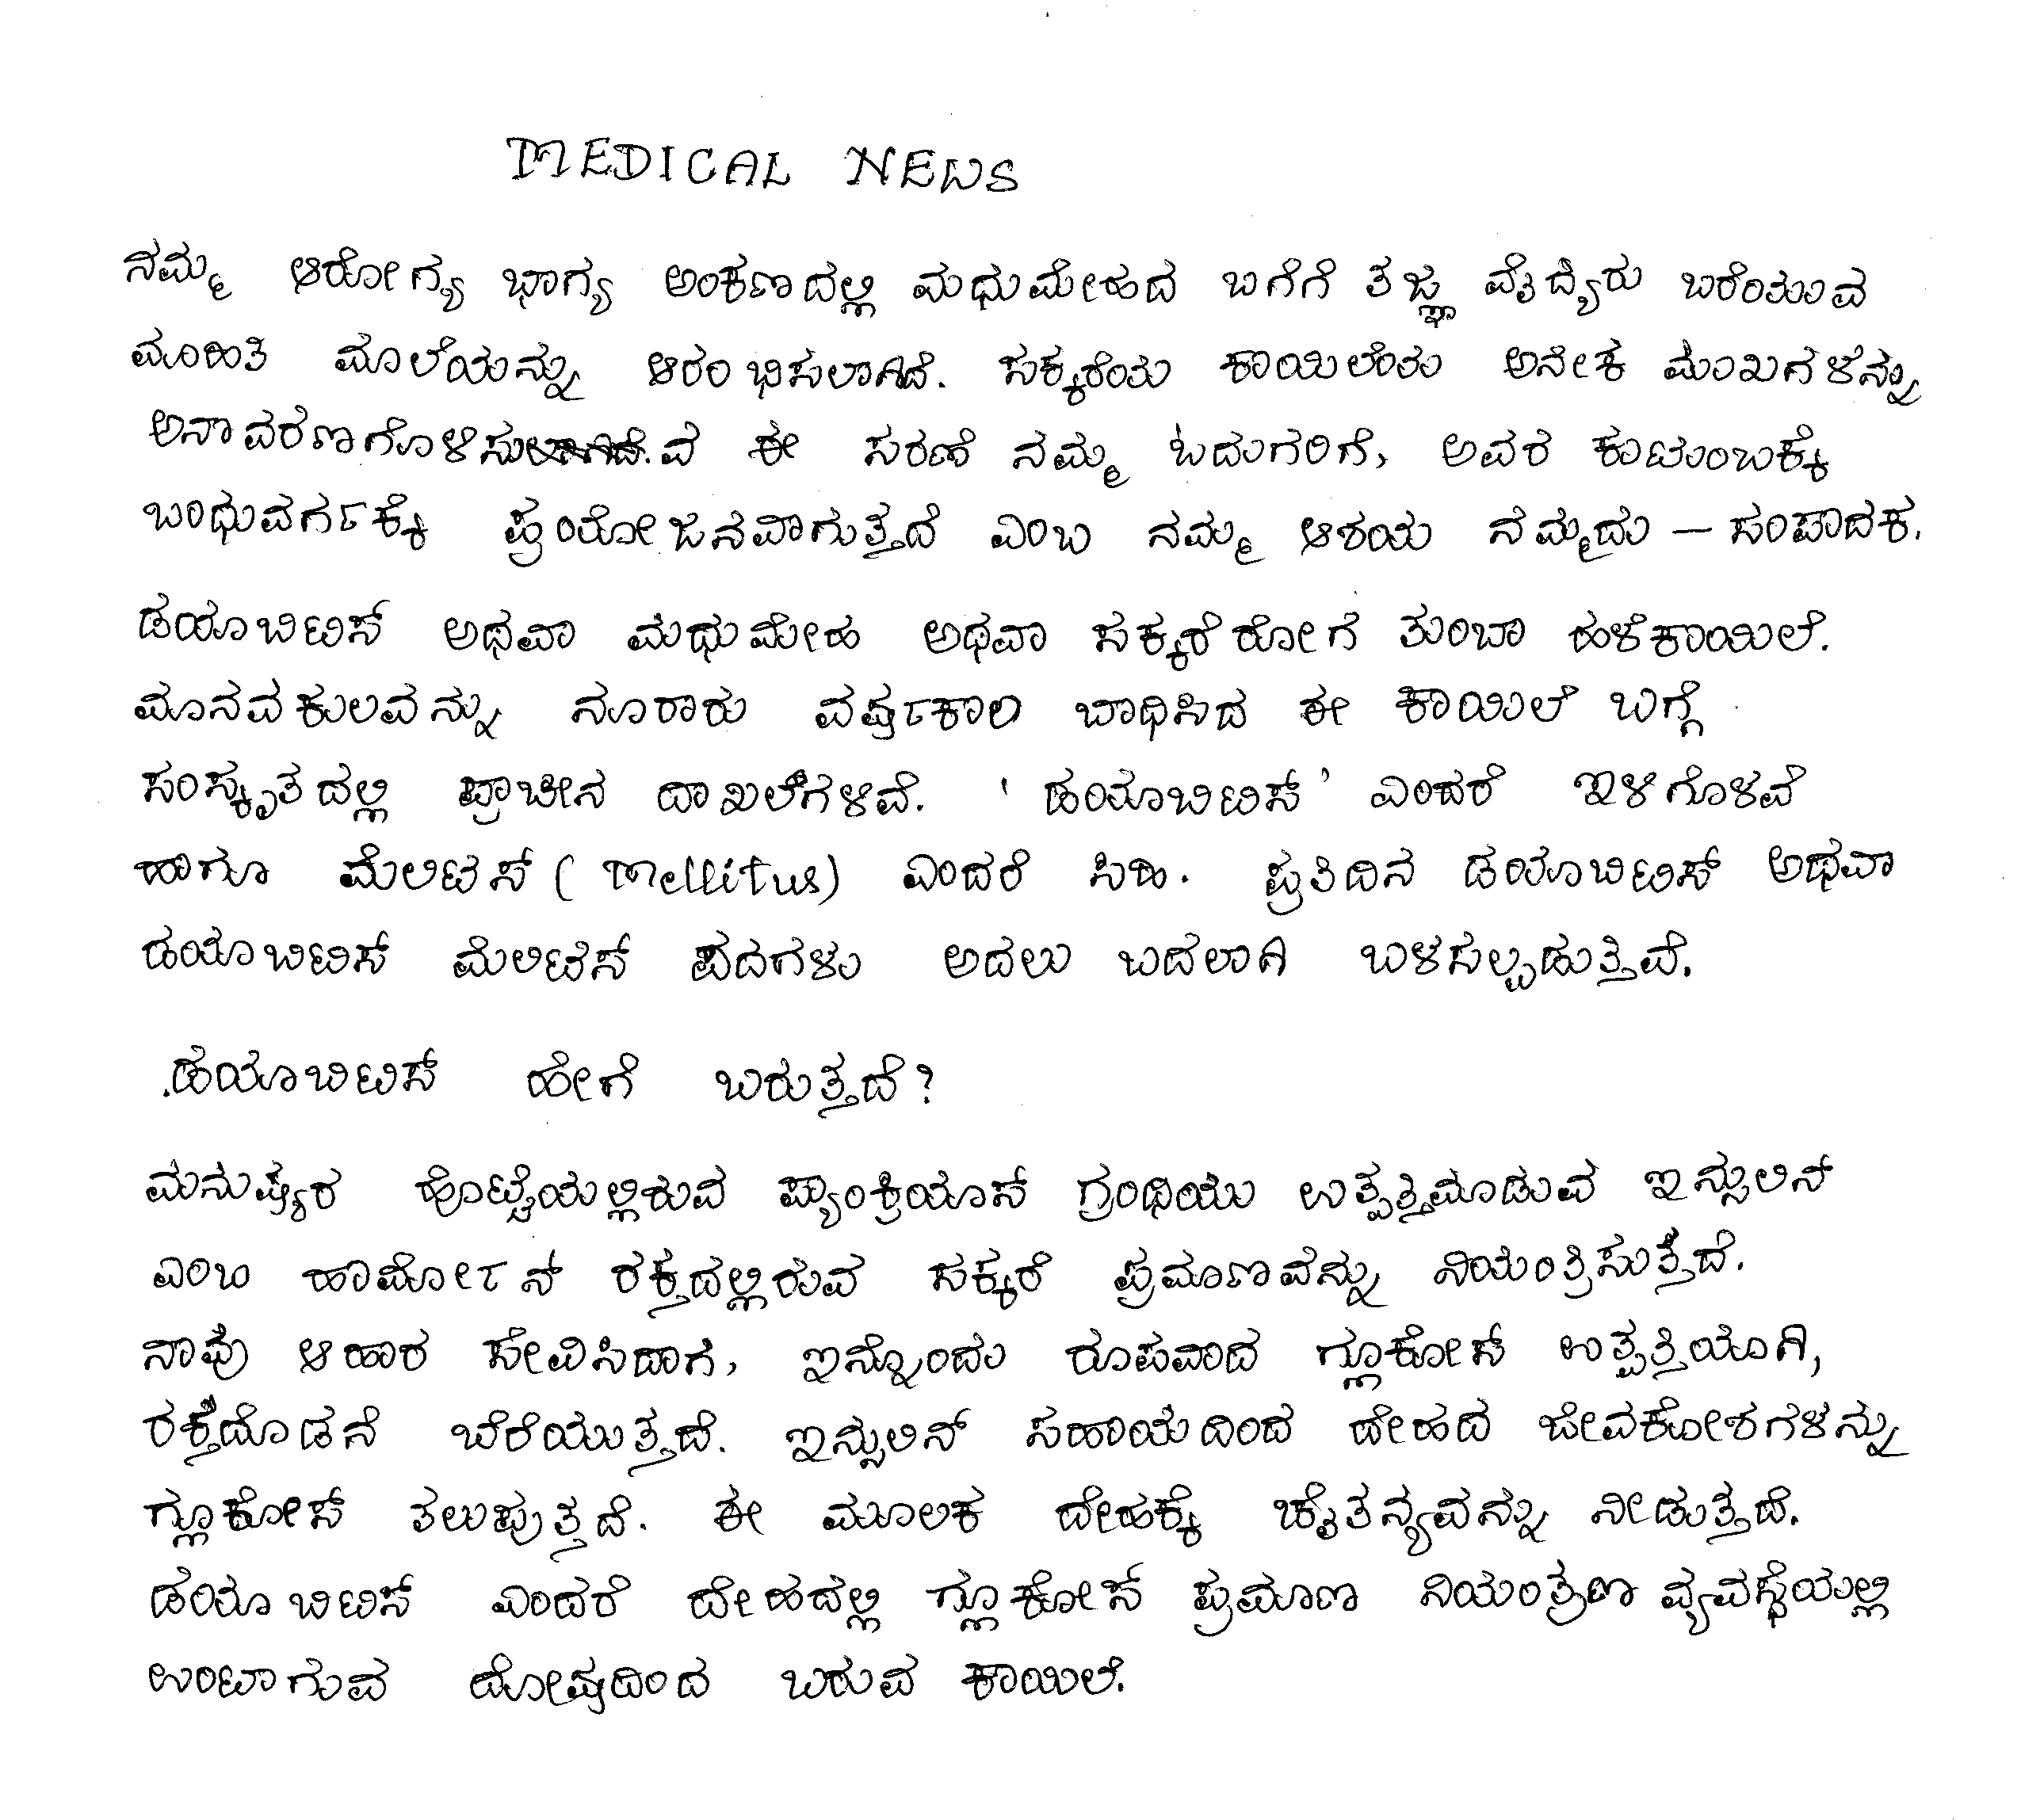 MEDICAL NEWS
ನಮ್ಮ ಆರೋಗ್ಯ ಭಾಗ್ಯ ಅಂಕಣದಲ್ಲಿ ಮಧುಮೇಹದ ಬಗೆಗೆ ತಜ್ಞ ವೈದ್ಯರು ಬರೆಯುವ
ಮಾಹಿತಿ ಮಾಲೆಯನ್ನು ಆರಂಭಿಸಲಾಗಿದೆ. ಸಕ್ಕರೆಯ ಕಾಯಿಲೆಯ ಅನೇಕ ಮುಖಗಳನ್ನು
ಅನಾವರಣಗೊಳಿಸುವ ಈ ಸರಣಿ ನಮ್ಮ ಓದುಗರಿಗೆ, ಅವರ ಕುಟುಂಬಕ್ಕೆ
ಬಂಧುವರ್ಗಕ್ಕೆ ಪ್ರಯೋಜನವಾಗುತ್ತದೆ ಎಂಬ ನಮ್ಮ ಆಶಯ ನಮ್ಮದು – ಸಂಪಾದಕ.
ಡಯಾಬಿಟಿಸ್ ಅಥವಾ ಮಧುಮೇಹ ಅಥವಾ ಸಕ್ಕರೆರೋಗ ತುಂಬಾ ಹಳೆಕಾಯಿಲೆ.
ಮಾನವಕುಲವನ್ನು ನೂರಾರು ವರ್ಷಕಾಲ ಬಾಧಿಸಿದ ಈ ಕಾಯಿಲೆ ಬಗ್ಗೆ
ಸಂಸ್ಕೃತದಲ್ಲಿ ಪ್ರಾಚೀನ ದಾಖಲೆಗಳಿವೆ. 'ಡಯಾಬಿಟಿಸ್' ಎಂದರೆ ಇಳಿಗೊಳವೆ
ಹಾಗೂ ಮೆಲಿಟಸ್ (mellitus) ಎಂದರೆ ಸಿಹಿ. ಪ್ರತಿದಿನ ಡಯಾಬಿಟಿಸ್ ಅಥವಾ
ಡಯಾಬಿಟಿಸ್ ಮೆಲಿಟಸ್ ಪದಗಳು ಅದಲು ಬದಲಾಗಿ ಬಳಸಲ್ಪಡುತ್ತಿವೆ.
ಡಯಾಬಿಟಿಸ್ ಹೇಗೆ ಬರುತ್ತದೆ?
ಮನುಷ್ಯರ ಹೊಟ್ಟೆಯಲ್ಲಿರುವ ಪ್ಯಾಂಕ್ರಿಯಾಸ್ ಗ್ರಂಥಿಯು ಉತ್ಪತ್ತಿಮಾಡುವ ಇನ್ಸುಲಿನ್
ಎಂಬ ಹಾರ್ಮೋನ್ ರಕ್ತದಲ್ಲಿರುವ ಸಕ್ಕರೆ ಪ್ರಮಾಣವನ್ನು ನಿಯಂತ್ರಿಸುತ್ತದೆ.
ನಾವು ಆಹಾರ ಸೇವಿಸಿದಾಗ, ಇನ್ನೊಂದು ರೂಪವಾದ ಗ್ಲೂಕೋಸ್ ಉತ್ಪತ್ತಿಯಾಗಿ,
ರಕ್ತದೊಡನೆ ಬೆರೆಯುತ್ತದೆ. ಇನ್ಸುಲಿನ್ ಸಹಾಯದಿಂದ ದೇಹದ ಜೀವಕೋಶಗಳನ್ನು
ಗ್ಲೂಕೋಸ್ ತಲುಪುತ್ತದೆ. ಈ ಮೂಲಕ ದೇಹಕ್ಕೆ ಚೈತನ್ಯವನ್ನು ನೀಡುತ್ತದೆ.
ಡಯಾಬಿಟಿಸ್ ಎಂದರೆ ದೇಹದಲ್ಲಿ ಗ್ಲೂಕೋಸ್ ಪ್ರಮಾಣ ನಿಯಂತ್ರಣ ವ್ಯವಸ್ಥೆಯಲ್ಲಿ
ಉಂಟಾಗುವ ದೋಷದಿಂದ ಬರುವ ಕಾಯಿಲೆ.